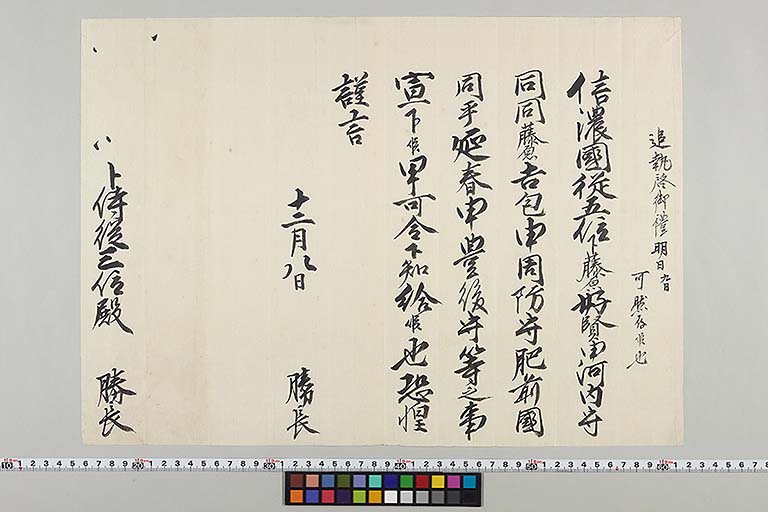 追執啓御禮明日九日
可然存候也
信濃國従五位下藤原好賢申河内守
同同藤原吉包申周防守肥前國
同平延春申豊後守等之事
宣下候早可令下知給候也恐惶
謹言
十二月八日 勝長
卜侍従三位殿 勝長